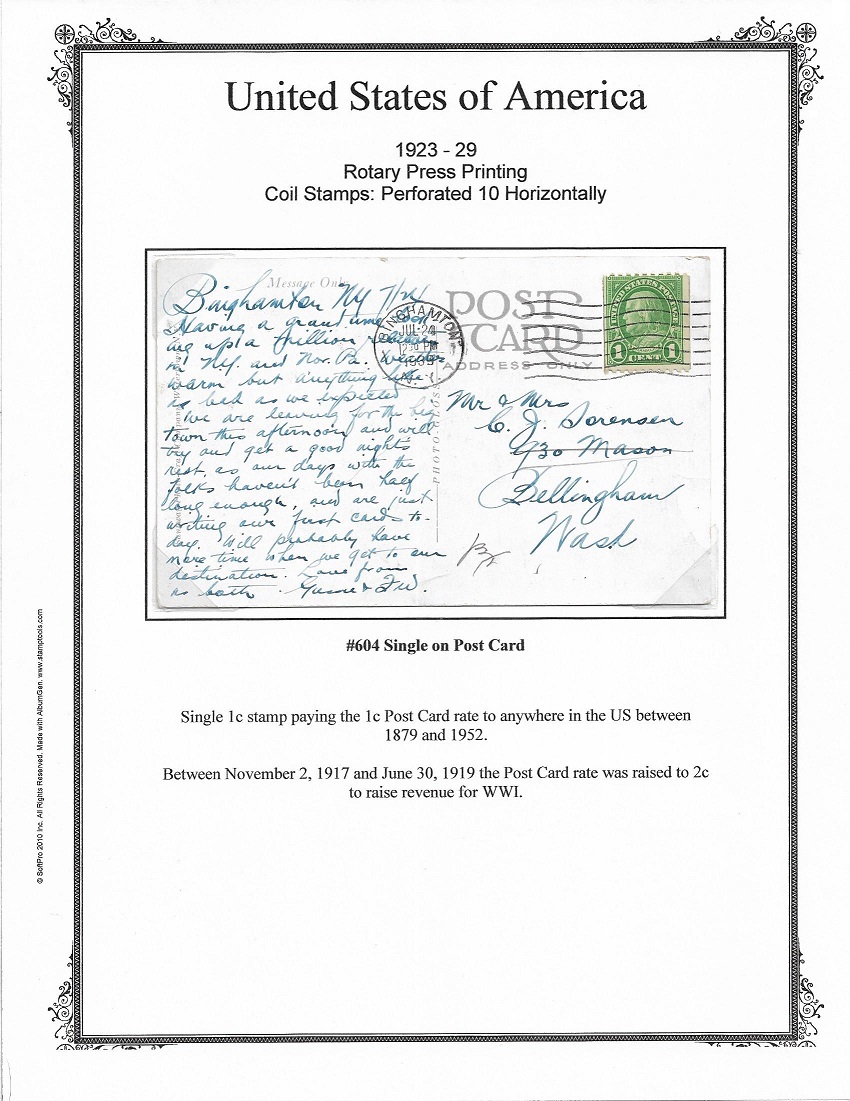 United States of America
1923 - 29
Rotary Press Printing
Coil Stamps: Perforated 10 Horizontally
Message Only
Binghamton NY
Having a grand time look
ing up a trillion relatives
in N.Y. and Nor. Pa. Weather
warm but anything like
as bad as we expected
We are leaving for the big
town this afternoon and will
try and get a good nights
rest, as our days with the
folks haven't been half
long enough, and are just
writing our first cards to-
day. Will probably have
more time when we get to our
destination. Love from
us both Gussie & F.W.
BINGHAMTON
JUL 24
230 PM
N.Y.
POST
CARD
ADDRESS ONLY
PHOTO GLOSS
UNITED STATES POSTAGE
1 CENT 1
Mr & Mrs
C. J. Sorensen
930 Mason
Bellingham
Wash
#604 Single on Post Card
Single 1c stamp paying the 1c Post Card rate to anywhere in the US between
1879 and 1952.
Between November 2, 1917 and June 30, 1919 the Post Card rate was raised to 2c
to raise revenue for WWI.
© SoftPro 2010 Inc. All Rights Reserved. Made with AlbumGen. www.stamptools.com